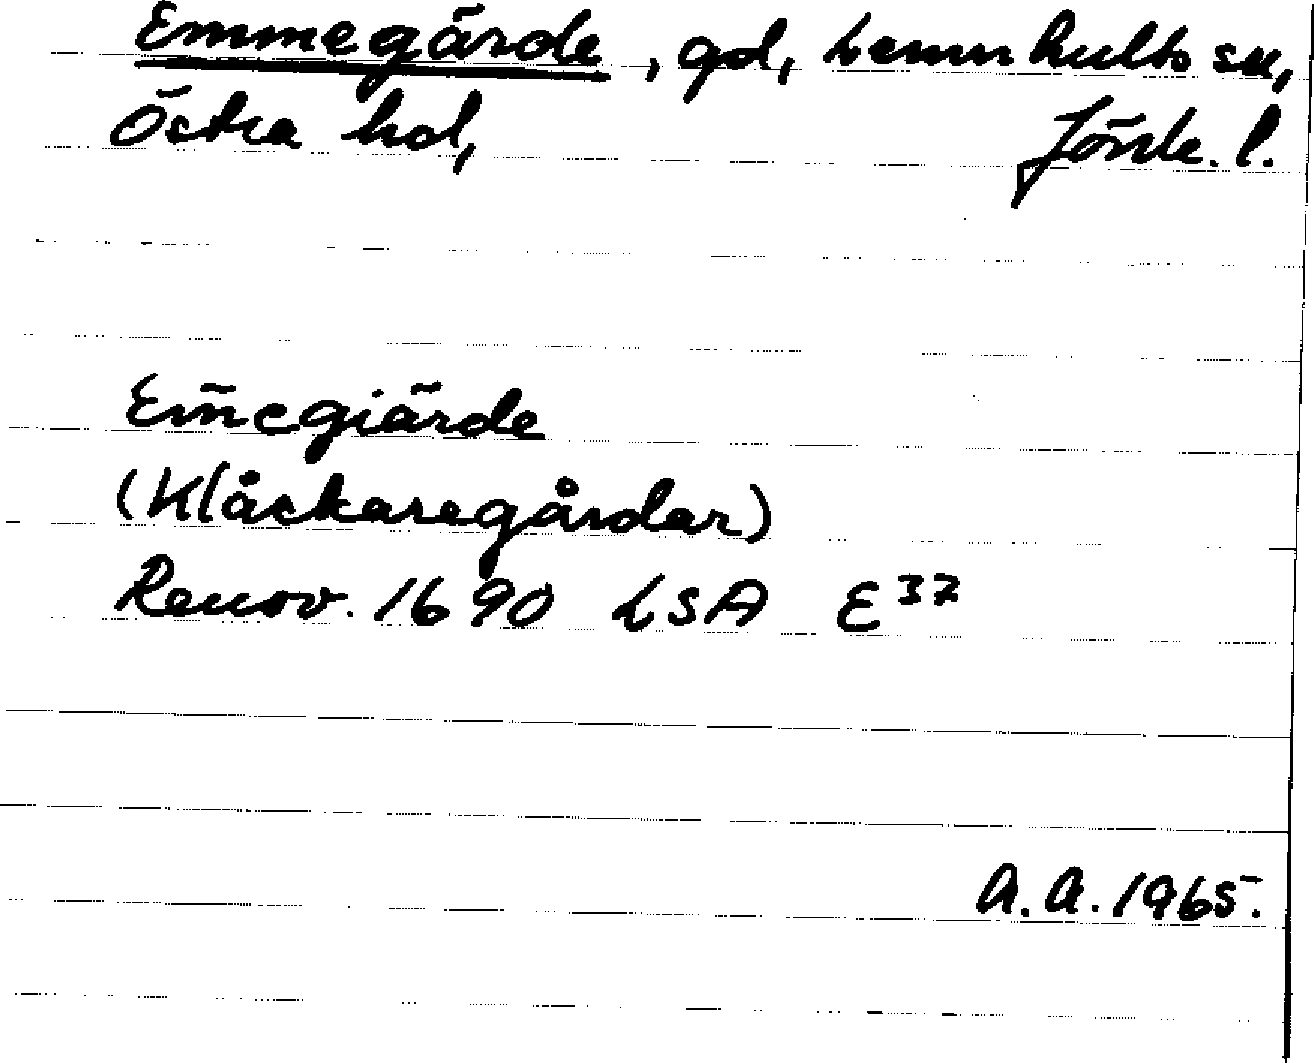 Emmegärde, gd, Lemnhults sn,
Östra hd, Jönk. l.
Em̄egiärde
(Klåckaregårdar)
Renov. 1690 LSA E³⁷
A.A. 1965.